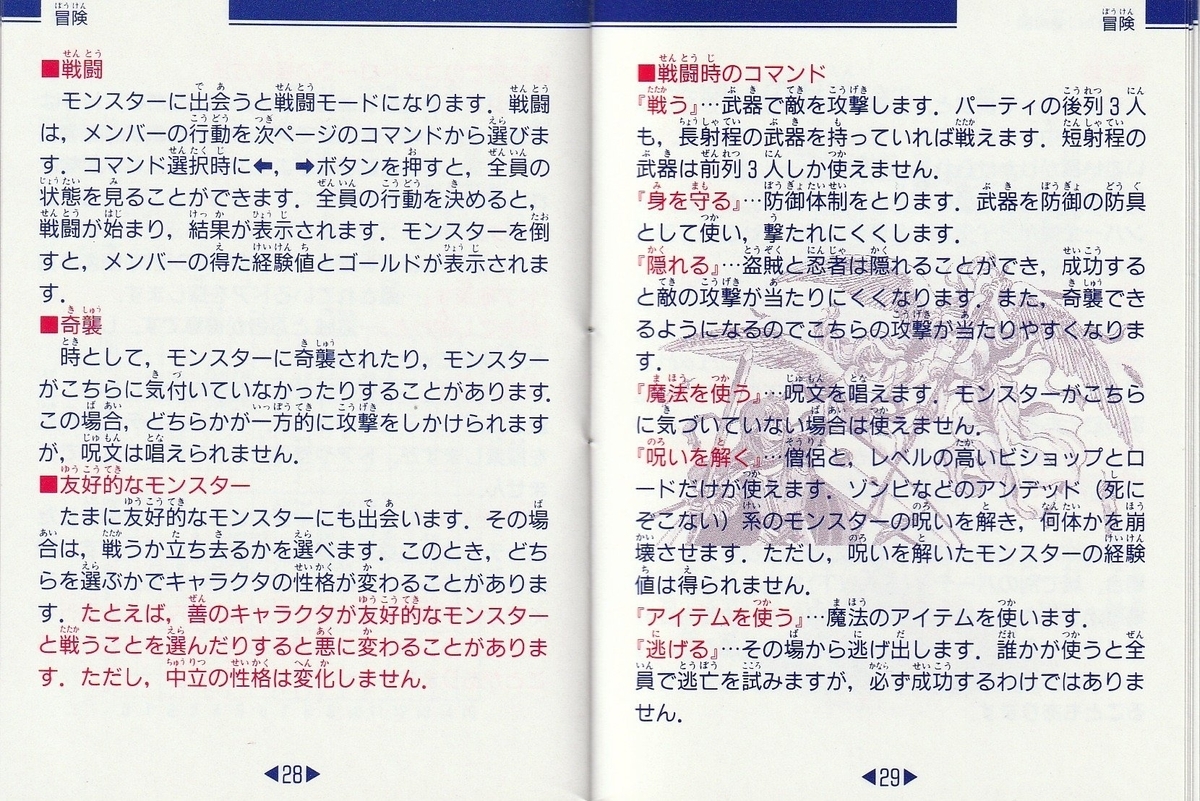 冒険
■戦闘
モンスターに出会うと戦闘モードになります．戦闘
は，メンバーの行動を次ページのコマンドから選びま
す．コマンド選択時に⬅，➡ボタンを押すと，全員の
状態を見ることができます．全員の行動を決めると，
戦闘が始まり，結果が表示されます．モンスターを倒
すと，メンバーの得た経験値とゴールドが表示されま
す．
■奇襲
時として，モンスターに奇襲されたり，モンスター
がこちらに気付いていなかったりすることがあります．
この場合，どちらかが一方的に攻撃をしかけられます
が，呪文は唱えられません．
■友好的なモンスター
たまに友好的なモンスターにも出会います．その場
合は，戦うか立ち去るかを選べます．このとき，どち
らを選ぶかでキャラクタの性格が変わることがありま
す．たとえば，善のキャラクタが友好的なモンスター
と戦うことを選んだりすると悪に変わることがありま
す．ただし，中立の性格は変化しません．
◀28▶
冒険
■戦闘時のコマンド
『戦う』…武器で敵を攻撃します．パーティの後列3人
も，長射程の武器を持っていれば戦えます．短射程の
武器は前列3人しか使えません．
『身を守る』…防御体制をとります．武器を防御の防具
として使い，撃たれにくくします．
『隠れる』…盗賊と忍者は隠れることができ，成功する
と敵の攻撃が当たりにくくなります．また，奇襲でき
るようになるのでこちらの攻撃が当たりやすくなりま
す．
『魔法を使う』…呪文を唱えます．モンスターがこちら
に気づいていない場合は使えません．
『呪いを解く』…僧侶と，レベルの高いビショップとロ
ードだけが使えます．ゾンビなどのアンデッド（死に
ぞこない）系のモンスターの呪いを解き，何体かを崩
壊させます．ただし，呪いを解いたモンスターの経験
値は得られません．
『アイテムを使う』…魔法のアイテムを使います．
『逃げる』…その場から逃げ出します．誰かが使うと全
員で逃亡を試みますが，必ず成功するわけではありま
せん．
◀29▶